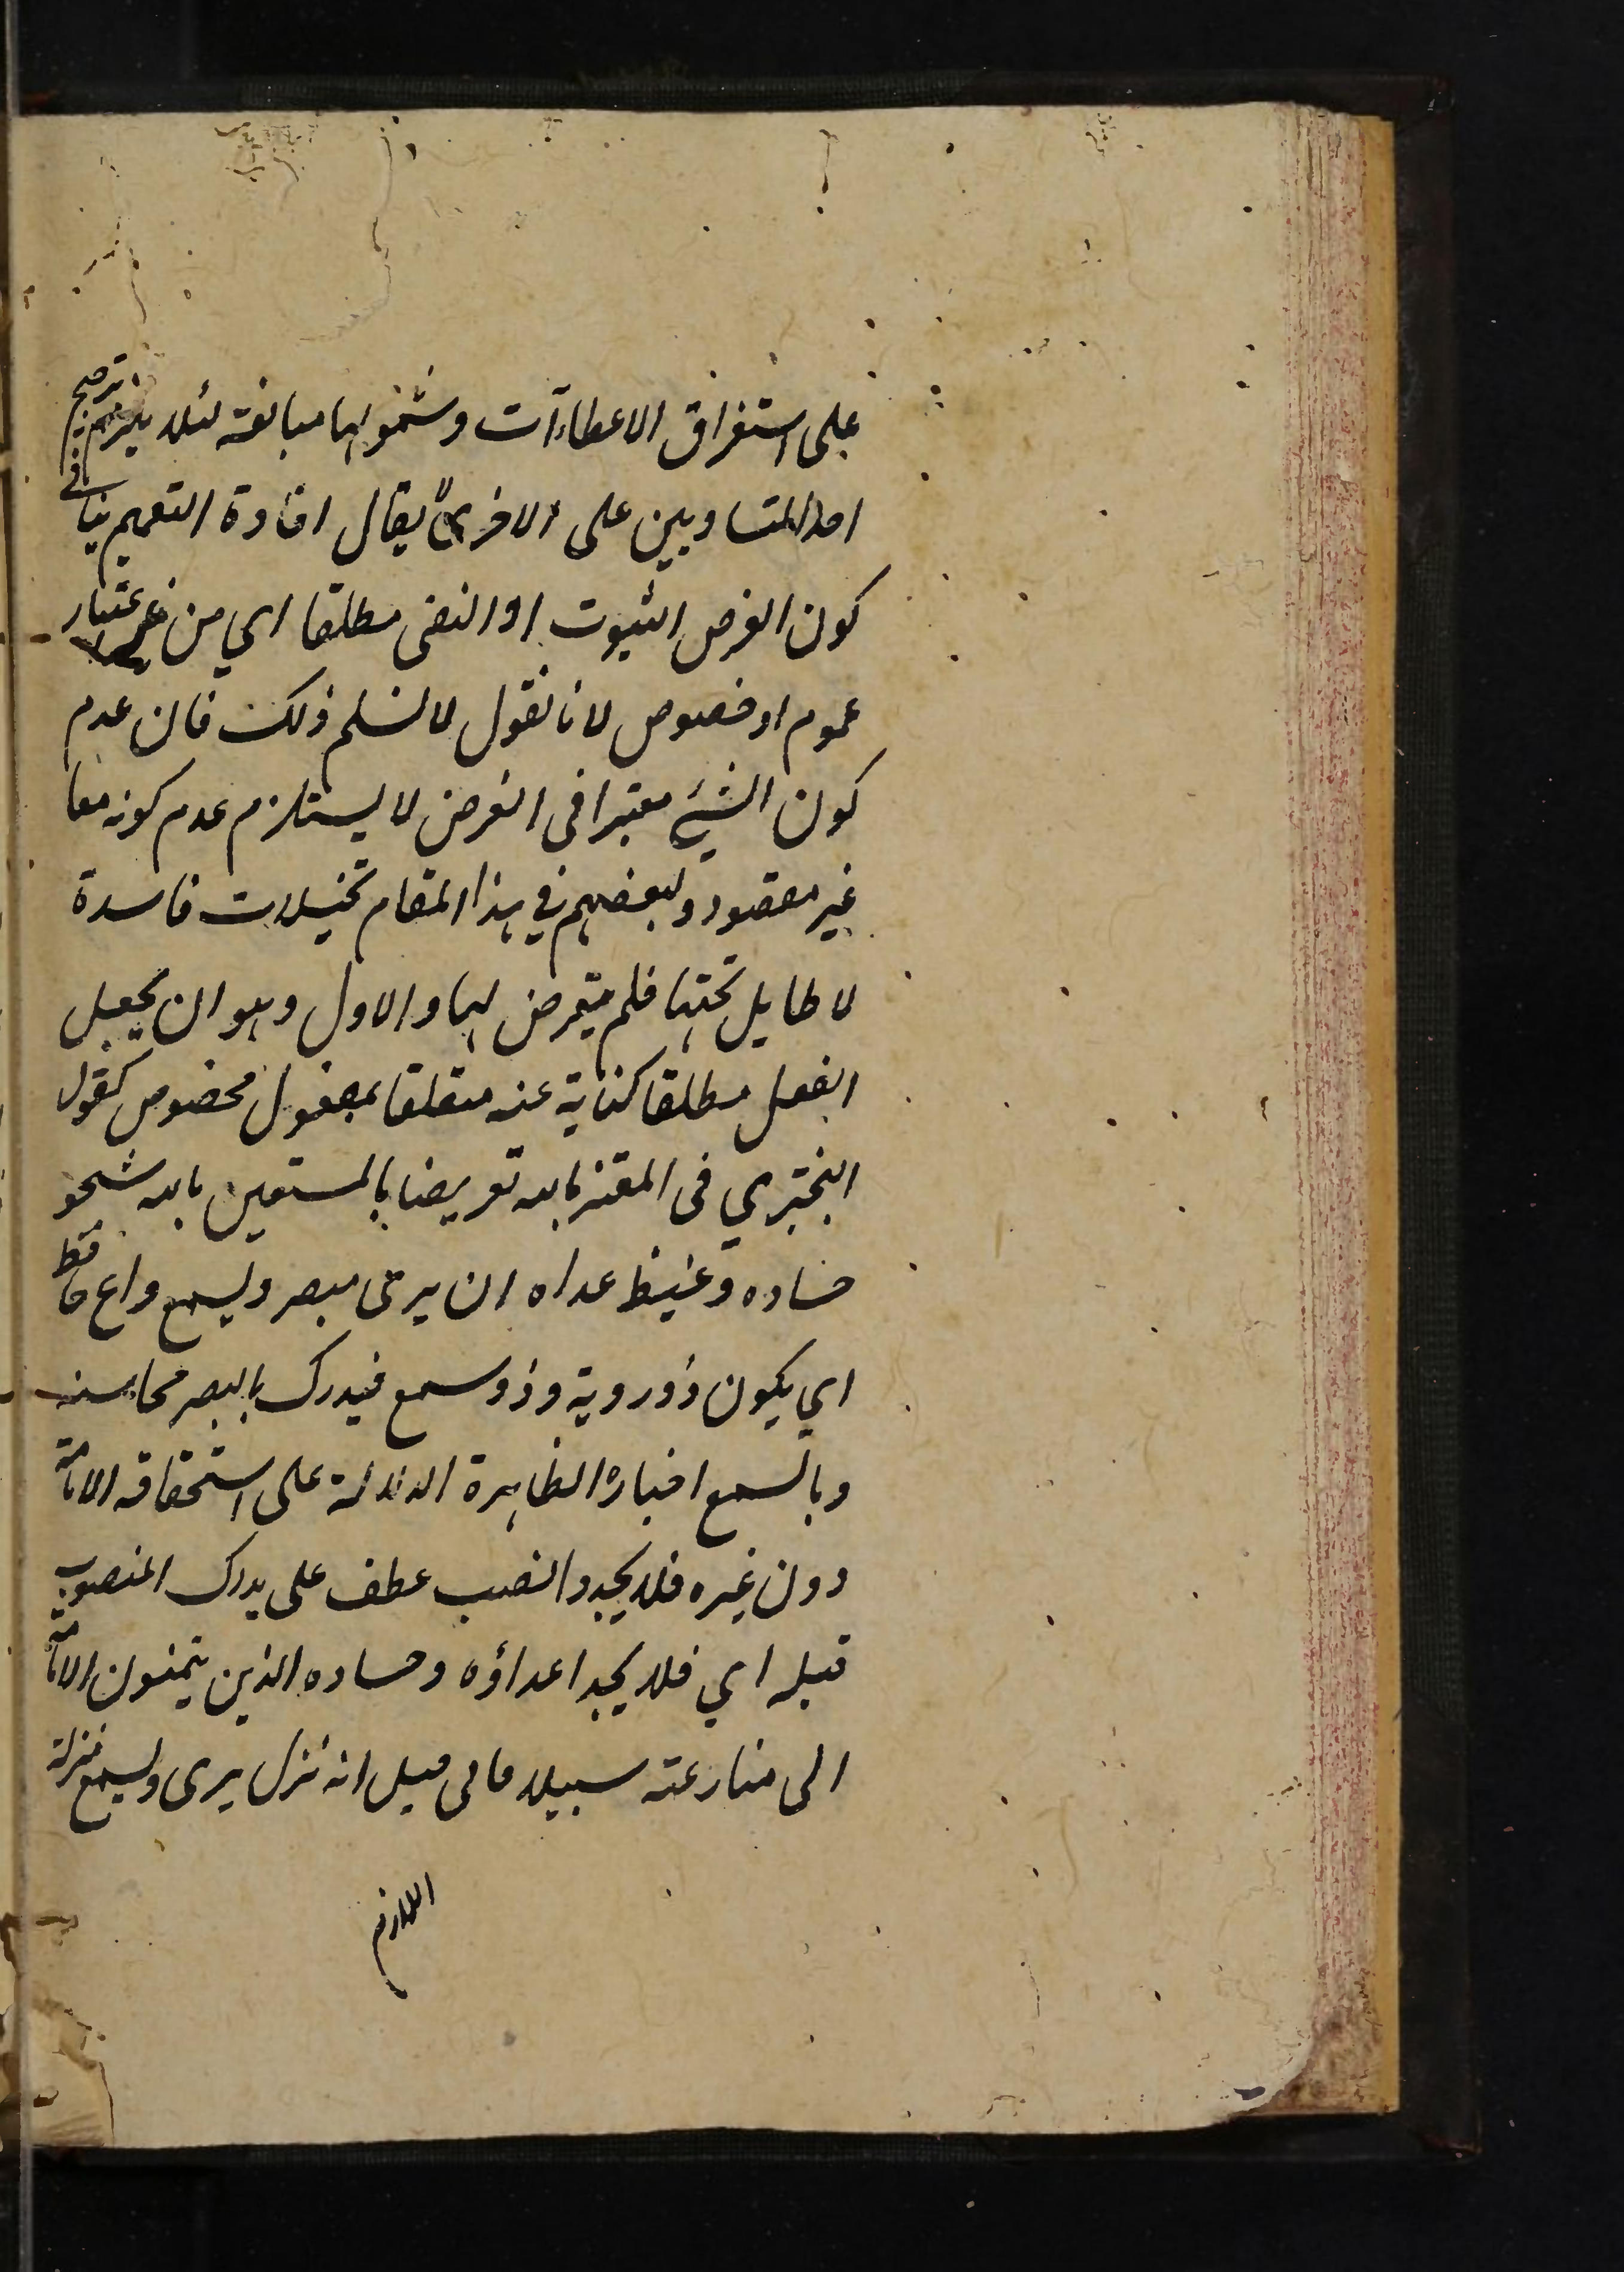 على استغراق الاعطاآت وشمولها مبالغة لئلا يلزم ترجيح
احد المتساويين على الاخر لا يقال افادة التعميم ينافى
كون الغرض الثبوت او النفى مطلقا اي من غير اعتبار
عموم او خصوص لانا نقول لا نسلم ذلك فان عدم
كون الشيء معتبرا فى الغرض لا يستلزم عدم كونه مفا
غير مقصود ولبعضهم في هذا المقام تخيلات فاسدة
لا طايل تحتها فلم يتعرض لها والاول وهو ان يجعل
الفعل مطلقا كناية عنه متعلقا بمفعول مخصوص كقول
البحتري فى المعتز بالله تعريضا بالمستعين بالله شجو
حساده وغيظ عداه ان يرى مبصر ويسمع واع
اي يكون ذو روية وذو سمع فيدرك بالبصر محاسنه
وبالسمع اخباره الظاهرة الدالة على استحقاقه الامامة
دون غيره فلا يجدوا نصب عطف على يدرك المنصوب
قبله اي فلا يجد اعداؤه وحساده الذين يتمنون الامامة
الى منازعته سبيلا فالحاصل انه نزل يرى ويسمع منزلة
اللازم